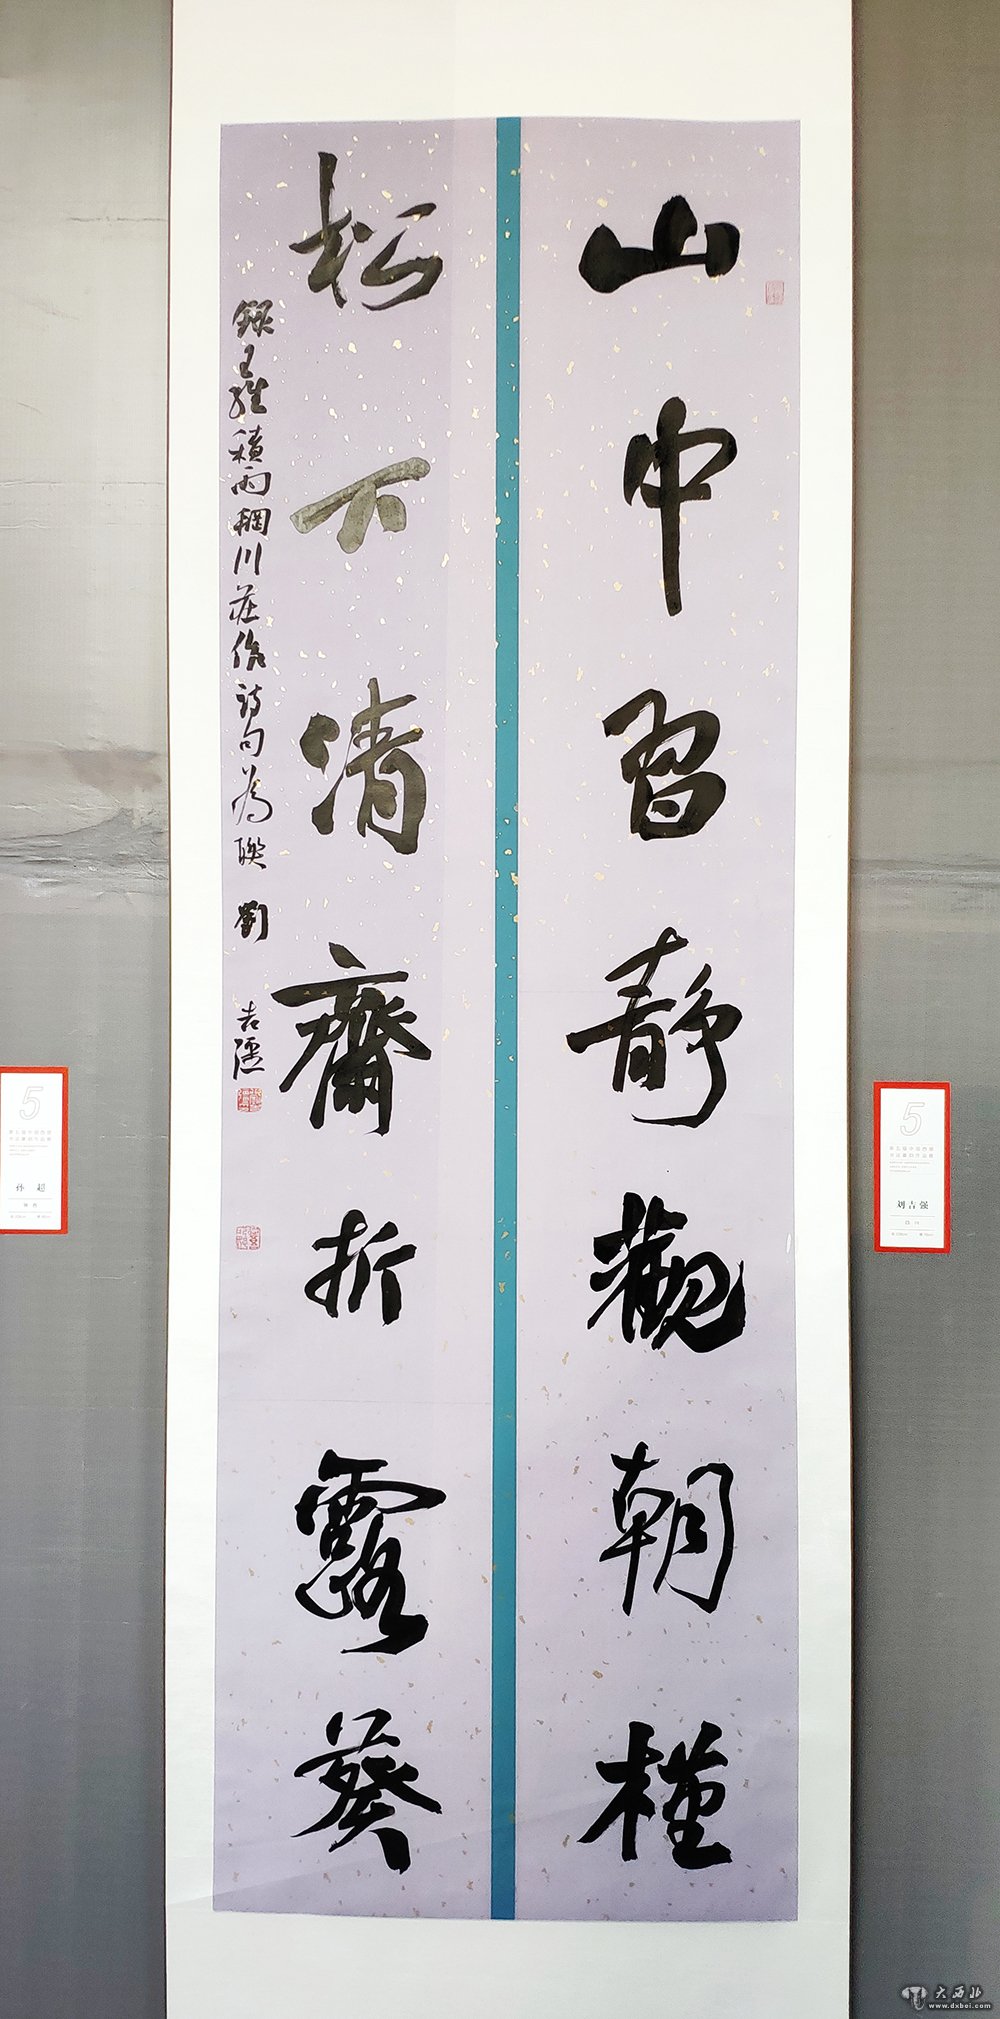 山中習靜觀朝槿
松下清齋折露葵
錄王維積雨輞川莊作詩句為聯 劉吉強
5
孙超
5
刘吉强
大西北
www.dxbei.com